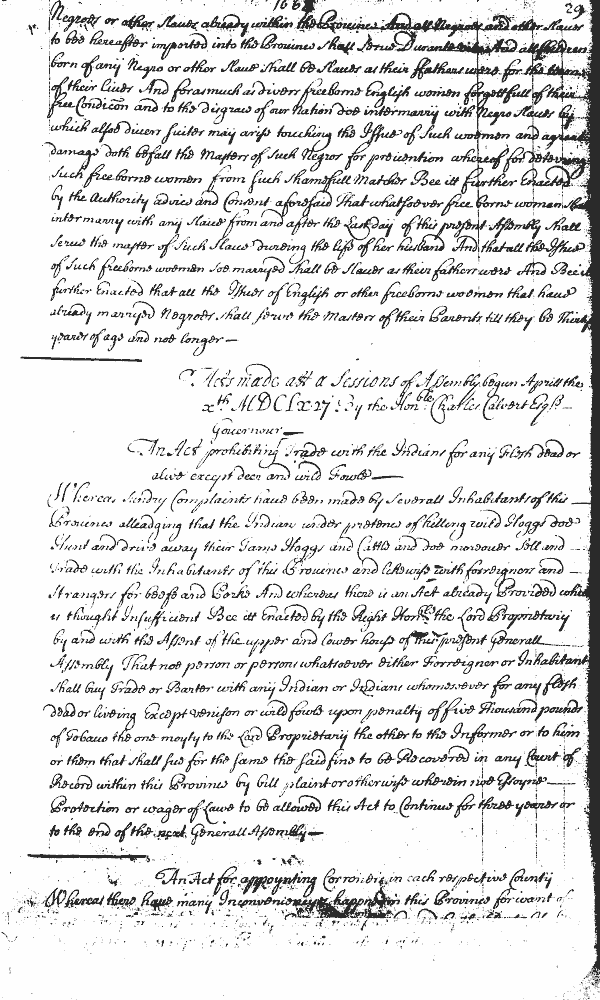 166 29
Negroes or other Slaves already within the Province And all Negroes and other Slaves
to bee hereafter imported into the Province shall serve Durante vita And all Children
born of any Negro or other Slave shall be Slaves as their ffathers were for the terme
of their lives And forasmuch as divers freeborne English women forgettfull of their
free Condicon and to the disgrace of our Nation doe intermarry with Negro Slaves by
which alsoe divers suites may arise touching the Issue of such woemen and a great
damage doth befall the Masters of such Negros for prevention whereof for deterring
such freeborne women from such shamefull Matches Bee itt further Enacted
by the Authority advice and Consent aforesaid That whatsoever free borne woman shall
intermarry with any Slave from and after the Last day of this present Assembly shall
serve the master of such Slave dureing the life of her husband And that all the Issue
of such freeborne woemen soe marryed shall be Slaves as their fathers were And Bee it
further Enacted that all the Issues of English or other freeborne woemen that have
already marryed Negroes shall serve the Masters of their Parents till they be Thirty
yeares of age and noe longer
Acts made att a Sessions of Assembly begun Aprill the
xth MDCLxvij By the Honble Charles Calvert Esqr
Governour
An Act prohibiting Trade with the Indians for any Flesh dead or
alive except deer and wild Fowle
Whereas sundry Complaints have been made by severall Inhabitants of this
Province alleadging that the Indians under pretence of killing wild Hoggs doe
Hunt and drive away their Tame Hoggs and Cattle and doe moreover Sell and
Trade with the Inhabitants of this Province and likewise with forreigners and
Strangers for beefe and Porke And whereas there is an Act already Provided which
is thought Insufficient Bee itt Enacted by the Right Honble the Lord Proprietary
by and with the Assent of the upper and Lower house of this present Generall
Assembly That noe person or persons whatsoever either Forreigner or Inhabitant
shall buy Trade or Barter with any Indian or Indians whomesoever for any flesh
dead or liveing Except venison or wild fowle upon penalty of five Thousand pounds
of Tobacco the one moyty to the Lord Proprietary the other to the Informer or to him
or them that shall sue for the same the said fine to be Recovered in any Court of
Record within this Province by bill plaint or otherwise wherein noe Essoyne
Protection or wager of Lawe to be allowed this Act to Continue for three yeares or
to the end of the next Generall Assembly
An Act for appoynting Corroners in each respective County
Whereas there have many Inconveniencyes happned in this Province for want of